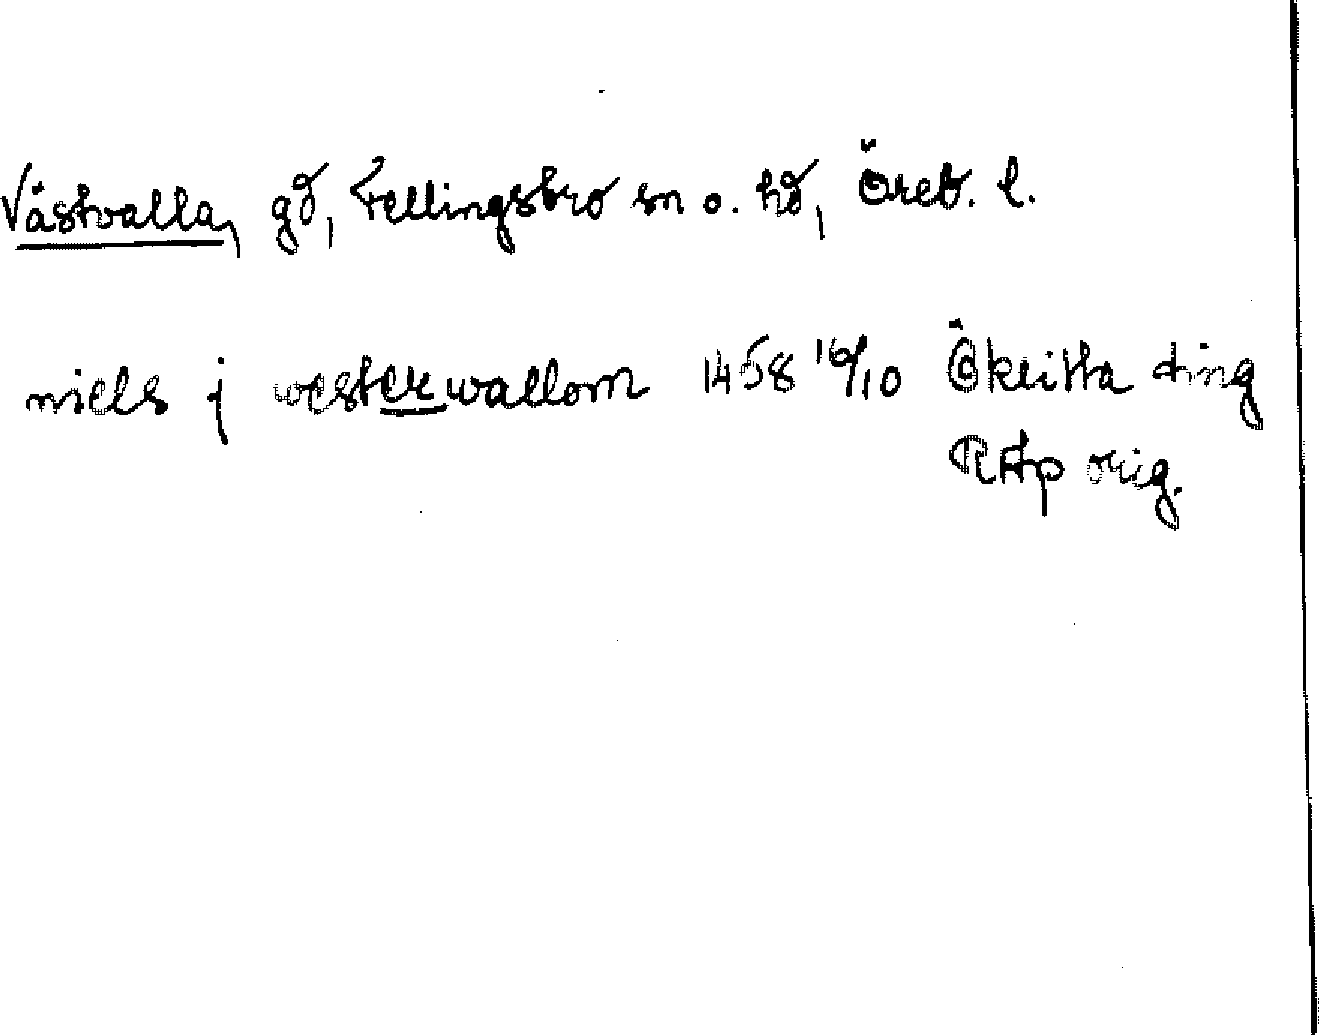 Västvalla, gd, Fellingsbro sn o. hd, Öreb. l.
niels j westerwallom 1458 16/10 Öklista ting
RAp orig.